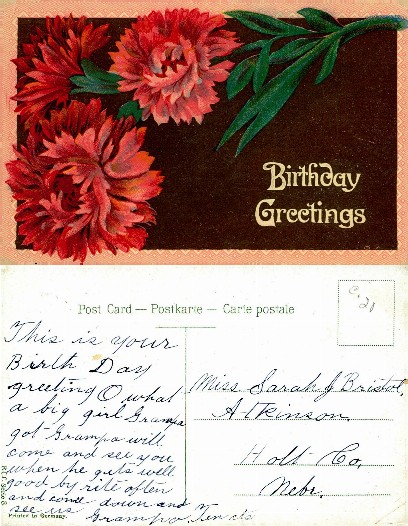 Birthday
Greetings
Post Card — Postkarte — Carte postale
C.
20
This is your
Birth Day
greeting O what
a big girl Grampa
got Grampa will
come and see you
when he gets well
good by rite often
and come down and
see us
Grampa
Miss Sarah J Bristol,
Atkinson.
Holt Co,
Nebr.
Printed in Germany.